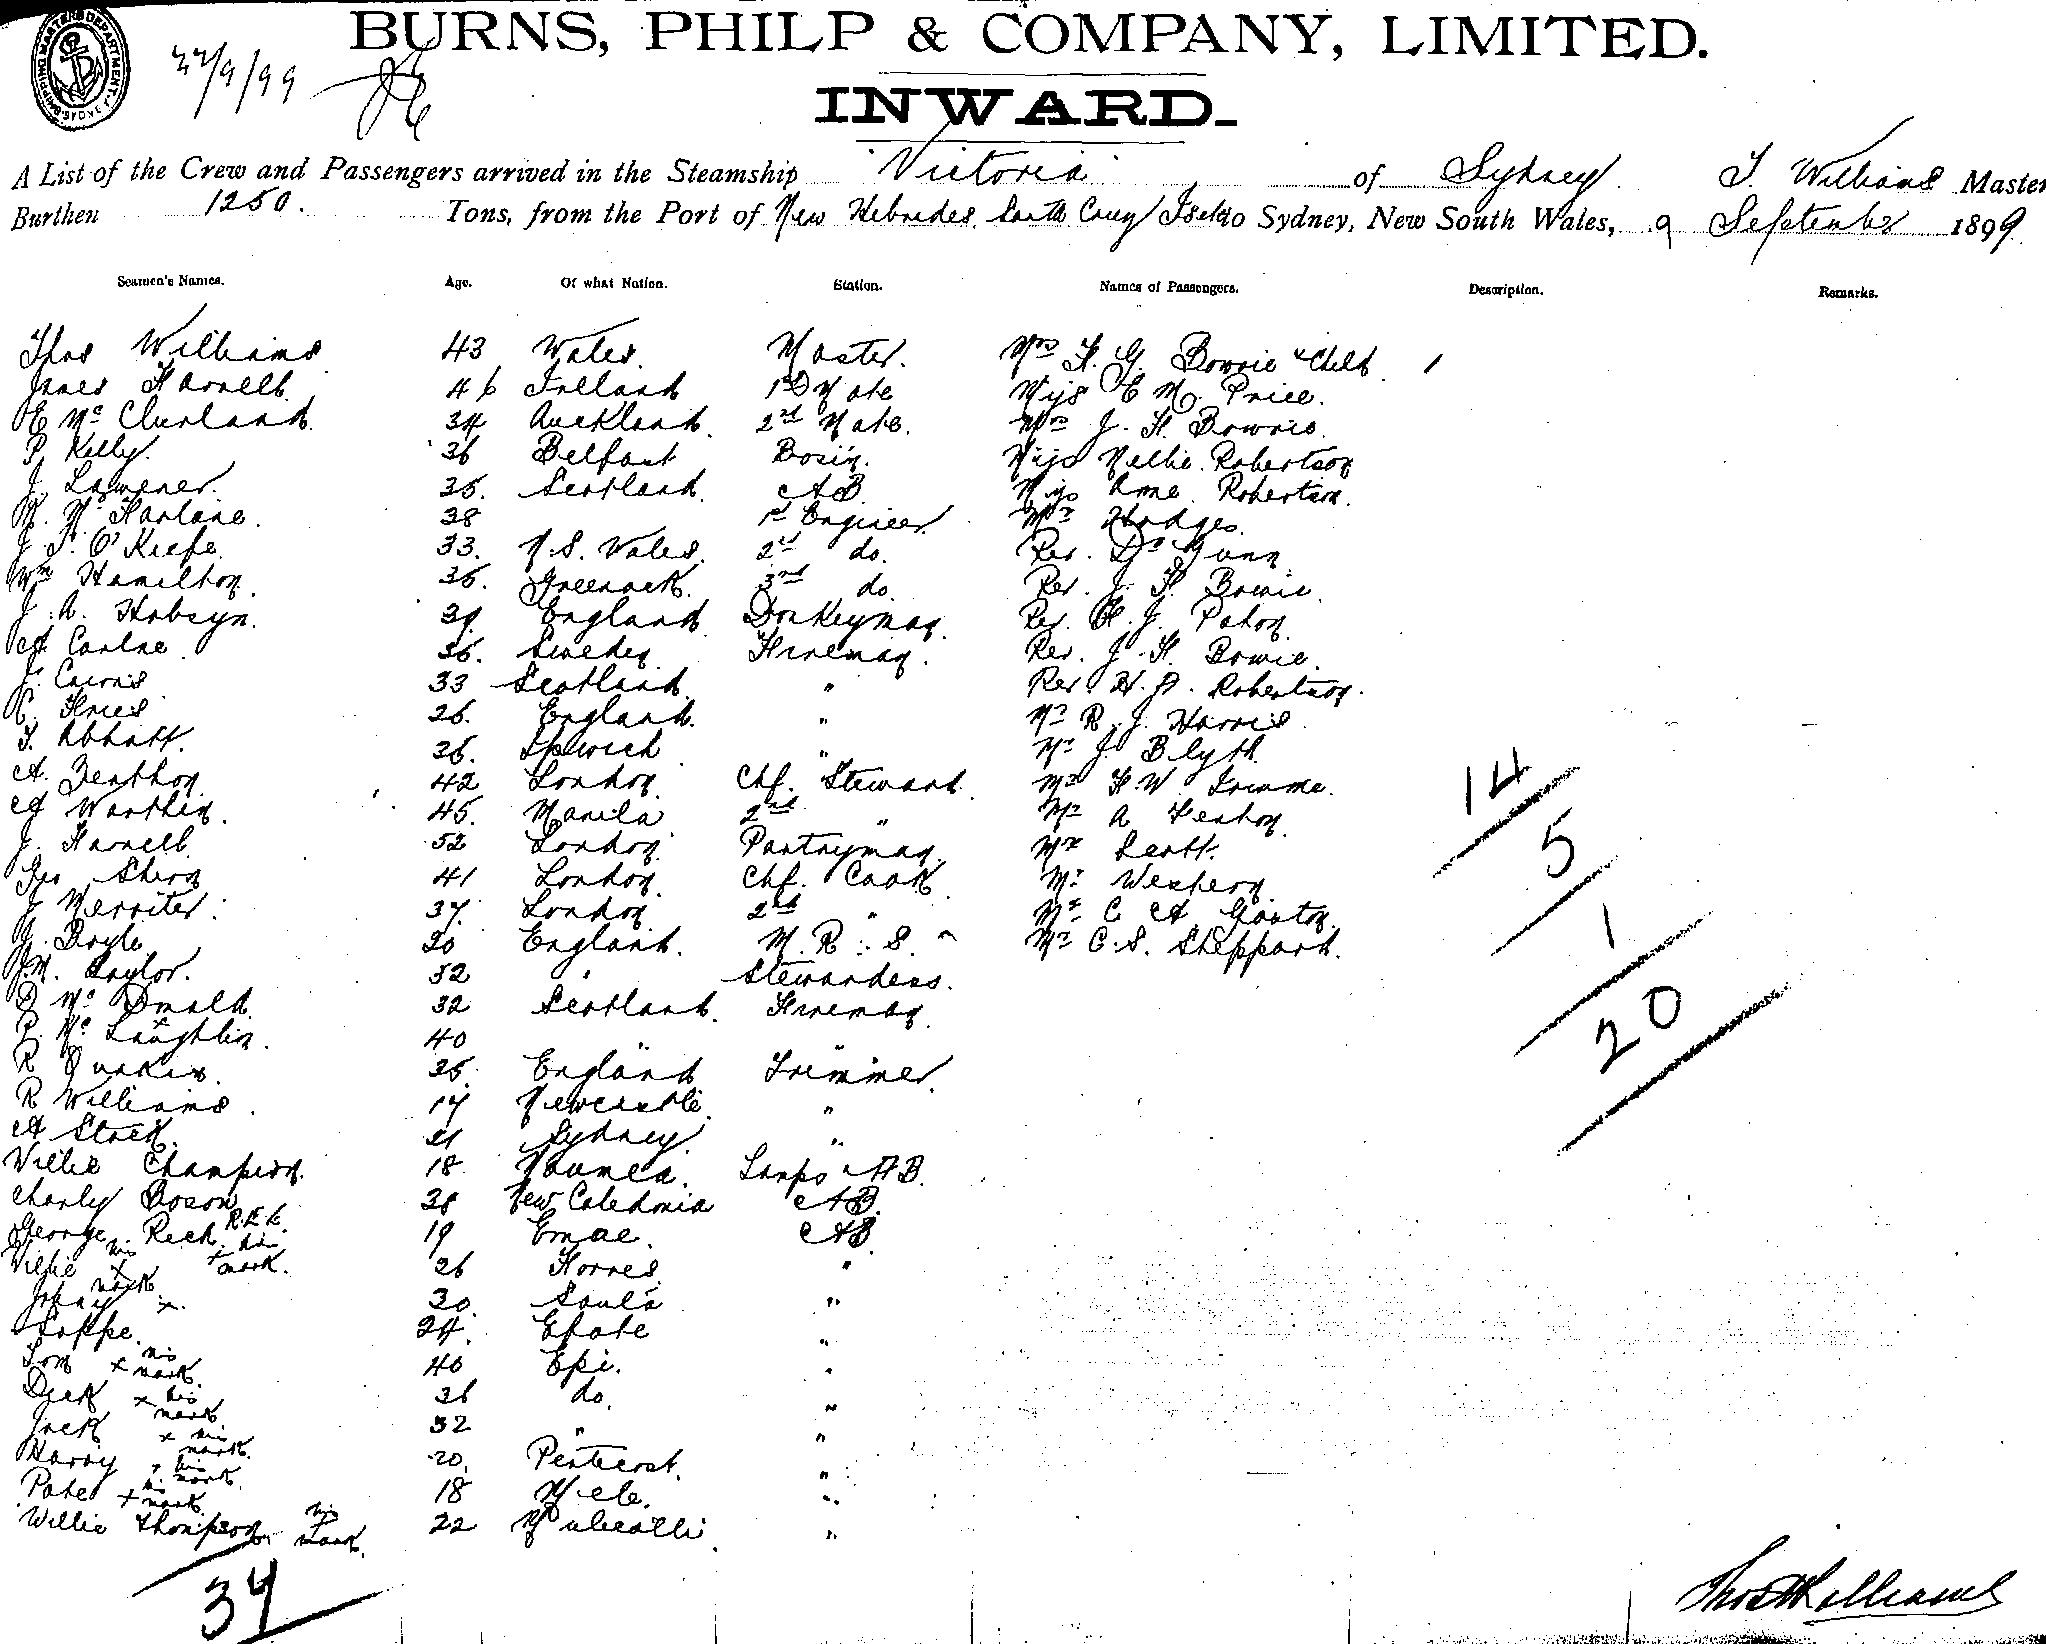 SHIPPING MASTERS DEPARTMENT SYDNEY
22/9/99
BURNS, PHILP & COMPANY, LIMITED.
INWARD.
A List of the Crew and Passengers arrived in the Steamship Victoria of Sydney T. Williams Master
Burthen 1250. Tons, from the Port of New Hebrides to Sydney, New South Wales, 9 September 1899
Seamen's Names. Age. Of what Nation. Station. Names of Passengers. Description. Remarks.
Thos Williams 43 Wales. Master. Mrs F. G. Bowie & Child 1
James Farnell 46 Ireland 1st Mate Miss E M. Price.
E McClurland. 34 Auckland. 2nd Mate. Mrs J. F. Bowie.
P. Kelly. 36 Belfast Bosin. Miss Nellie Robertson
J. 35. Scotland. AB. Miss Anne Robertson.
McFarlane. 38 1st Engineer Mr Hodges.
J. O'Kiefe. 33. N.S. Wales. 2nd do. Rev. Dr Gunn
Wm Hamilton. 35. Greenock. 3rd do. Rev. J. F. Bowie.
J. A. 39. England Donkeyman. Rev. F. J. Paton
A 36. Sweden Fireman. Rev. J. F. Bowie.
J. Cairns 33 Scotland. " Rev. H. A. Robertson.
C. Fries 26. England. " Mr R. J. Harris
T. Abbott. 26. Ipswich " Mr J. Blyth
A. Benthon. 42 London Chf. Steward Mr F. W.
A 45. Manila 2nd " Mr A Fenton
J. Farnell 52 London. Pantryman. Mr Scott.
Geo 41 London Chf. Cook Mr
J Merriter. 37. London 2nd " Mr C A
J. Boyle 30 England. M. R. S. Mr C. S. Sheppard.
J.M. Taylor. 32 " Stewardess.
D McDonald. 32 Scotland. Fireman
P. McLaughlin. 40 " "
R 35. England Trimmer.
R Williams 17 Newcastle "
A Stock. 21 Sydney "
Willie Champion. 18 Noumea. Lamps & AB.
Charly Boson 38 New Caledonia AB.
George Reck. 19 Emae. AB.
his x mark.
Willie his x mark 26 Torres "
Johny x 30. "
Soppe. 24. Efate "
Tom x his mark. 40 Epi. "
Dick x his mark 36 do. "
Jack x his mark 32 " "
Harry x his mark 20. Pentecost. "
Pate x his mark 18 Mele. "
Willie Thompson his mark. 22 "
14
5
1
20
37
Thos Williams